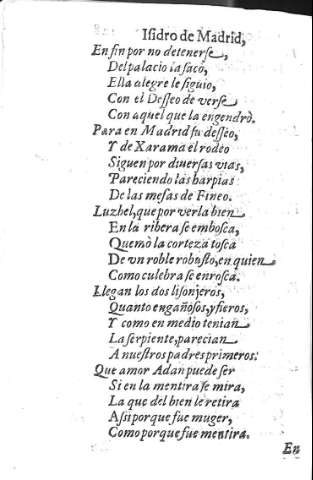 Isidro de Madrid,
En fin por no detenerse,
Del palacio la sacò,
Ella alegre le siguio,
Con el Desseo de verse
Con aquel que la engendrò.
Para en Madrid su desseo,
Y de Xarama el rodeo
Siguen por diuersas vias,
Pareciendo las harpias
De las mesas de Fineo.
Luzbel, que por verla bien
En la ribera se embosca,
Quemò la corteza tosca
De vn roble robusto, en quien
Como culebra se enrosca.
Llegan los dos lisonjeros,
Quanto engañosos, y fieros,
Y como en medio tenian
La serpiente, parecian
A nuestros padres primeros.
Que amor Adan puede ser
Si en la mentira se mira,
La que del bien le retira
Assi porque fue muger,
Como porque fue mentira.
En